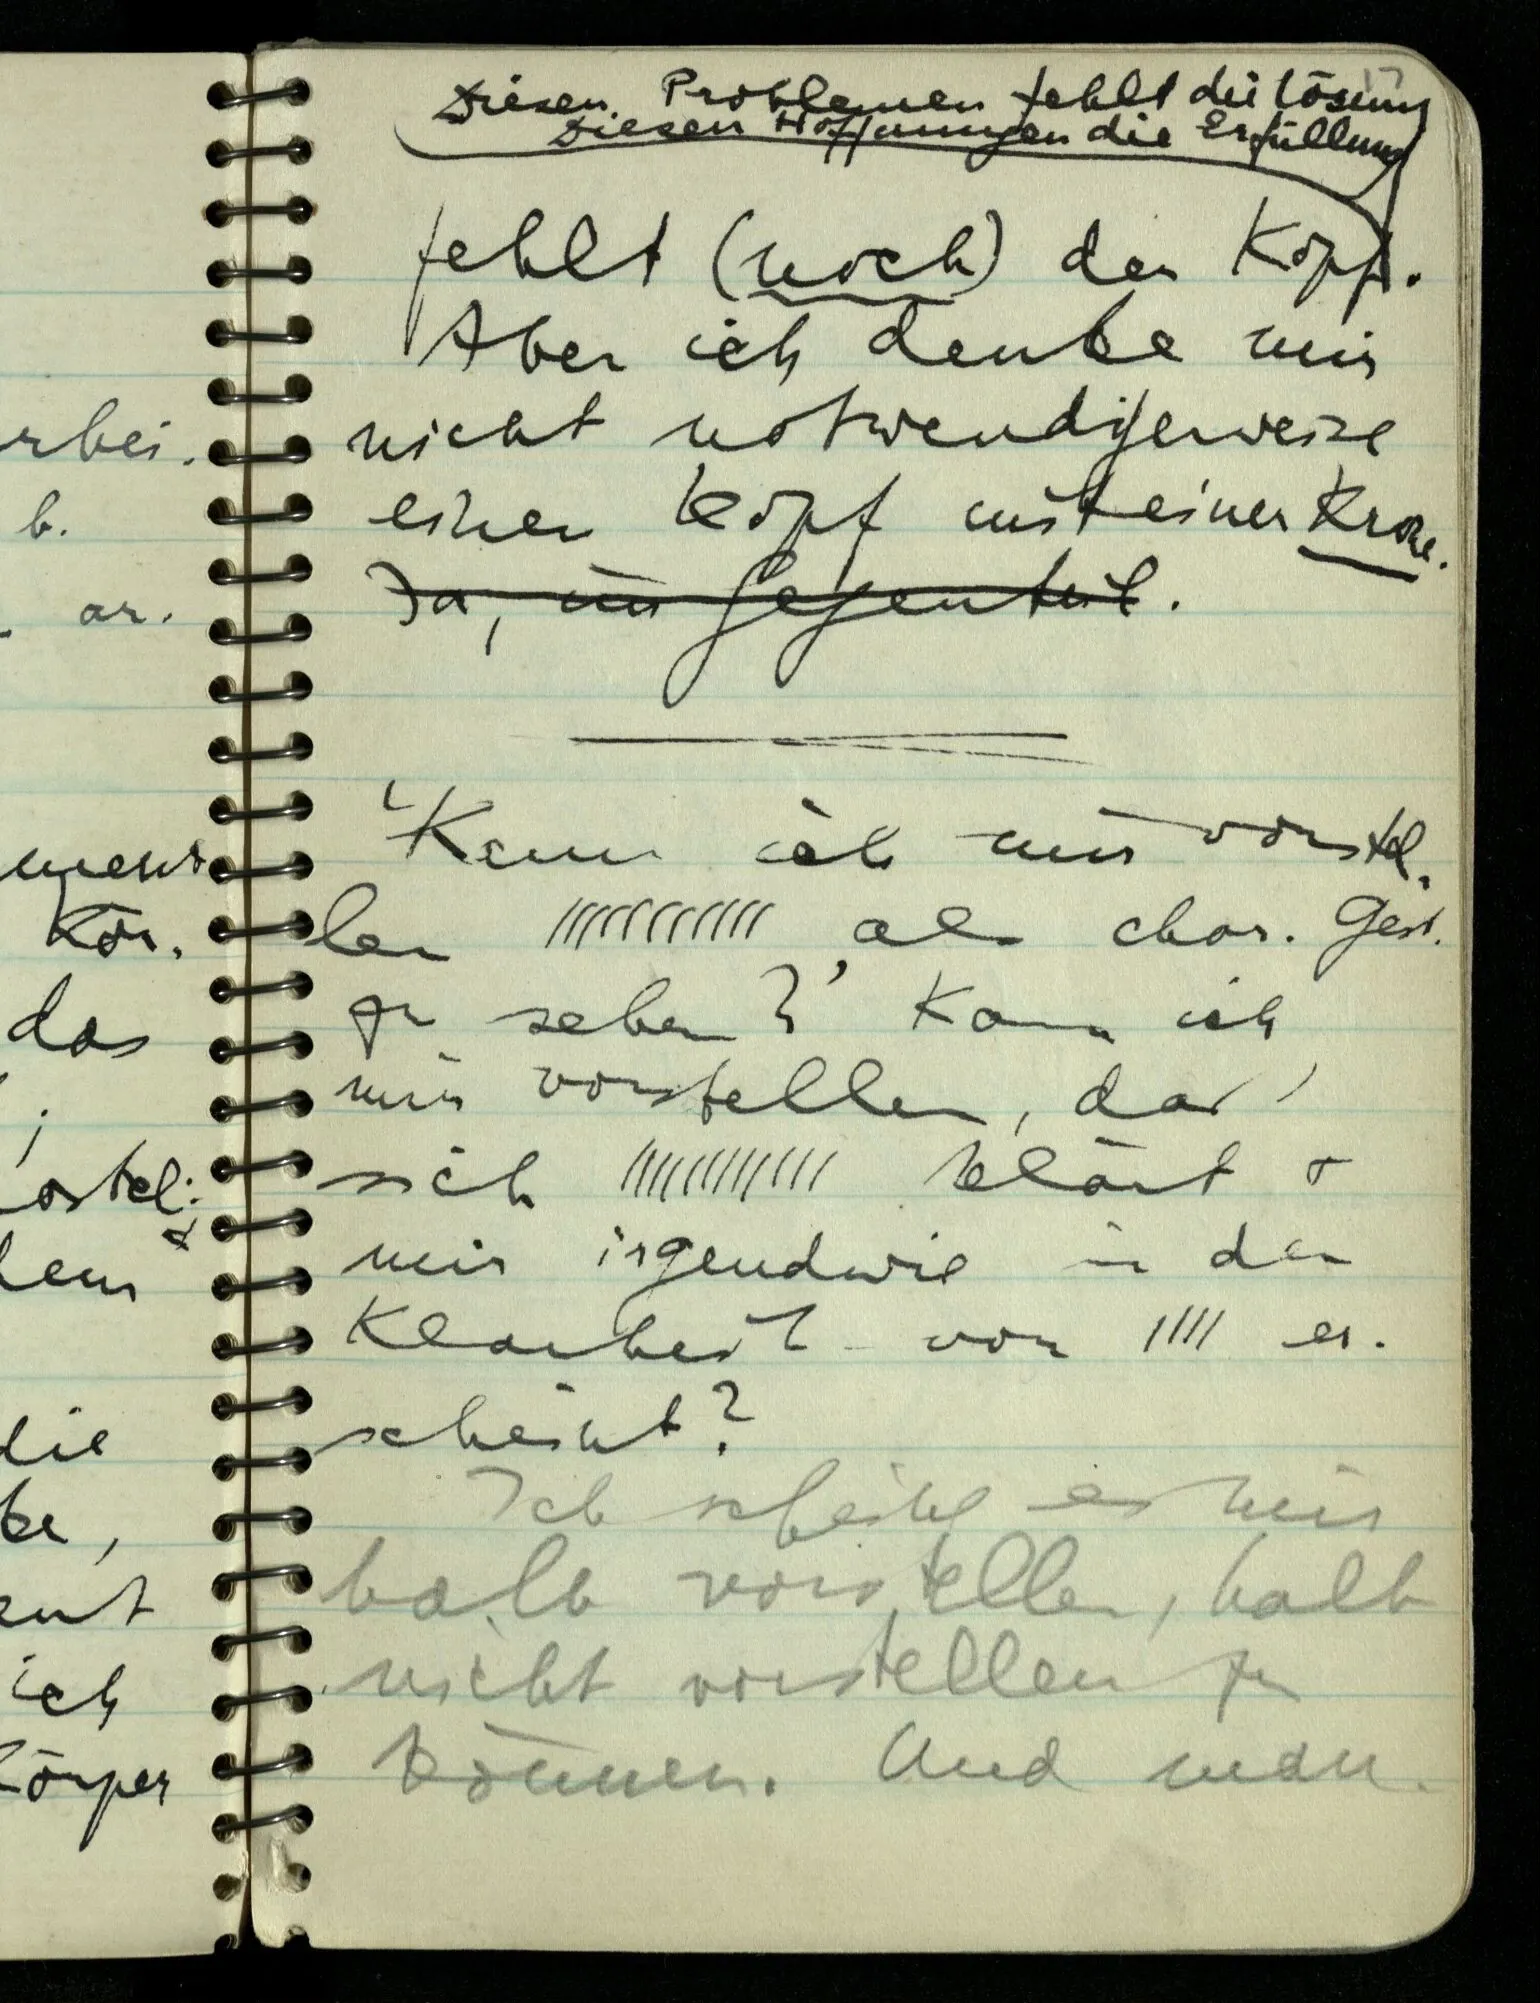 rbei.
b.
ar.
ment
Kör.
das
;
ostel:
&
hem
die
be,
ent
ich
Körper
17
Diesen Problemen fehlt die Lösung
Diesen Hoffnungen die Erfüllung
fehlt (noch) der Kopf.
Aber ich denke mir
nicht notwendigerweise
einen Kopf mit einer Krone.
Ja, im Gegenteil.
‘Kann ich mir vorstel-
len ////////////, als char. Gest.
zu sehen?’ Kann ich
mir vorstellen, daß
sich //////////// klärt &
mir irgendwie in der
Klarheit von //// er-
scheint?
Ich scheine es mir
halb vorstellen, halb
nicht vorstellen zu
können. Und man